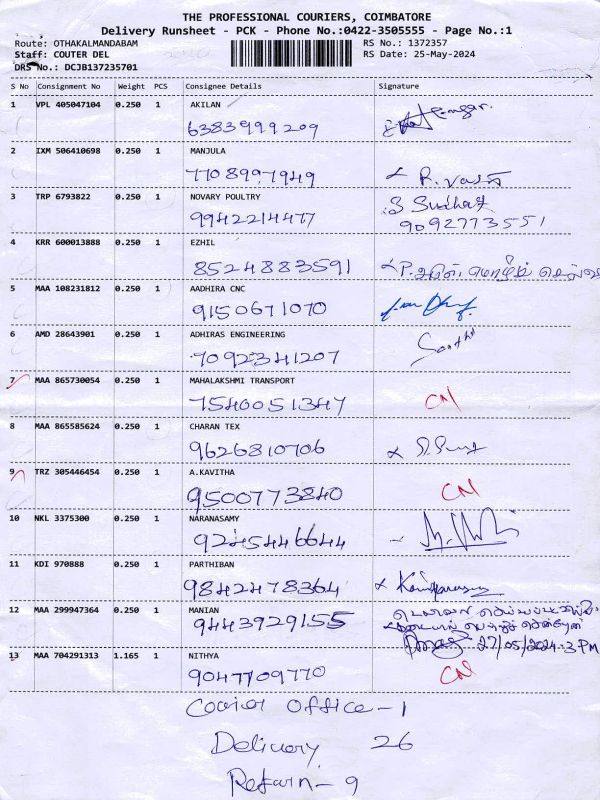 THE PROFESSIONAL COURIERS, COIMBATORE
Delivery Runsheet - PCK - Phone No.:0422-3505555 - Page No.:1
Route: OTHAKALMANDABAM RS No.: 1372357
Staff: COUTER DEL RS Date: 25-May-2024
DRS No.: DCJB137235701
S No Consignment No Weight PCS Consignee Details Signature
1 VPL 405047104 0.250 1 AKILAN
6383999209
2 IXM 506410698 0.250 1 MANJULA
7708997949
3 TRP 6793822 0.250 1 NOVARY POULTRY
9942214477 9092773551
4 KRR 600013888 0.250 1 EZHIL
8524883591
5 MAA 108231812 0.250 1 AADHIRA CNC
9150671070
6 AMD 28643901 0.250 1 ADHIRAS ENGINEERING
7092341207
7 MAA 865730054 0.250 1 MAHALAKSHMI TRANSPORT
7540051347 CN
8 MAA 865585624 0.250 1 CHARAN TEX
9626810706
9 TRZ 305446454 0.250 1 A.KAVITHA
9500773840 CN
10 NKL 3375300 0.250 1 NARANASAMY
9245446644
11 KDI 970888 0.250 1 PARTHIBAN
9842478364
12 MAA 299947364 0.250 1 MANIAN
9443929155
27/05/2024. 3 PM
13 MAA 704291313 1.165 1 NITHYA
9047709770 CN
Office - 1
Delivery 26
Return - 9